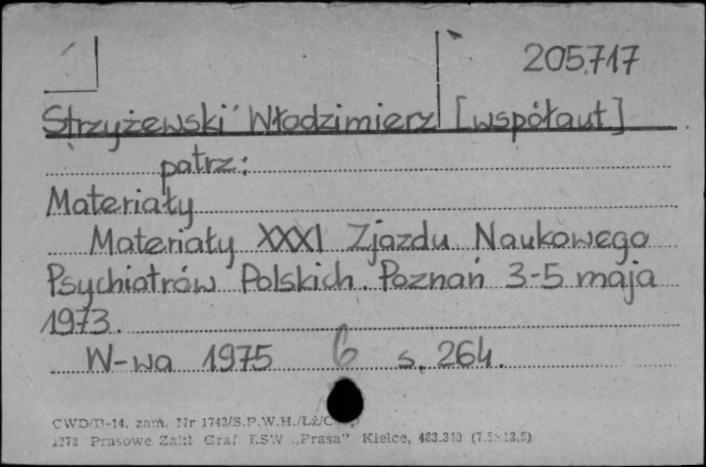 205.717
Strzyżewski Włodzimierz [współaut.]
patrz:
Materiały
Materiały XXXI Zjazdu Naukowego
Psychiatrów Polskich. Poznań 3-5 maja
1973.
W-wa 1975 6 s. 264.
CWD/D-14. zam. Nr 1743/S.P.W.H./Łż/C
1272 Prasowe Zakł. Graf RSW „Prasa" Kielce, 483.310 (7.5×12.5)